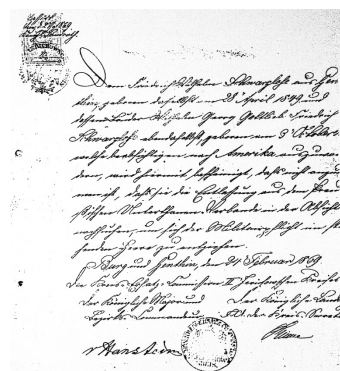 Dem Friedrich Wilhelm Schwarzlose aus Gen-
thin, geboren daselbst am 28 April 1849 und
dessen Bruder Wilhelm Georg Gottlieb Friedrich
Schwarzlose ebendaselbst, geboren am 3 October
welche beabsichtigen nach Amerika auszuwan-
dern, wird hiermit bescheinigt, daß nicht anzu
nehmen ist, daß sie die Entlassung aus dem Preu
ßischen Unterthanen Verbande in der Absicht
nachsuchen, um sich der Militairpflicht im ste
henden Heere zu entziehen.
Burg und Genthin, den 24 Februar 1869
Die Kreis-Ersatz-Commission II Jerichowschen Kreises
Der Königliche Major und Der Königliche Land
Bezirks Commandeur
v Hanstein